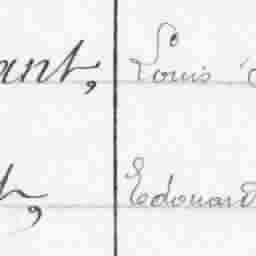 ant, Louis
t, Edouard